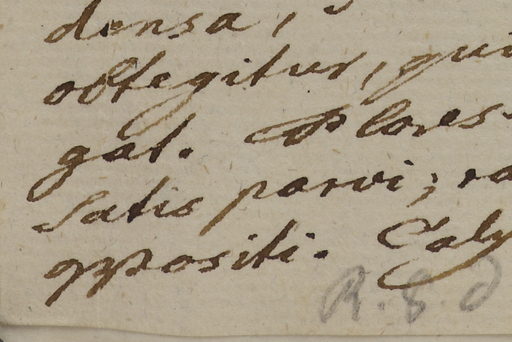 densa,
obtegitur, qui
gat. Flores
Satis parvi; ra
oppositi. Caly
R. 8. d